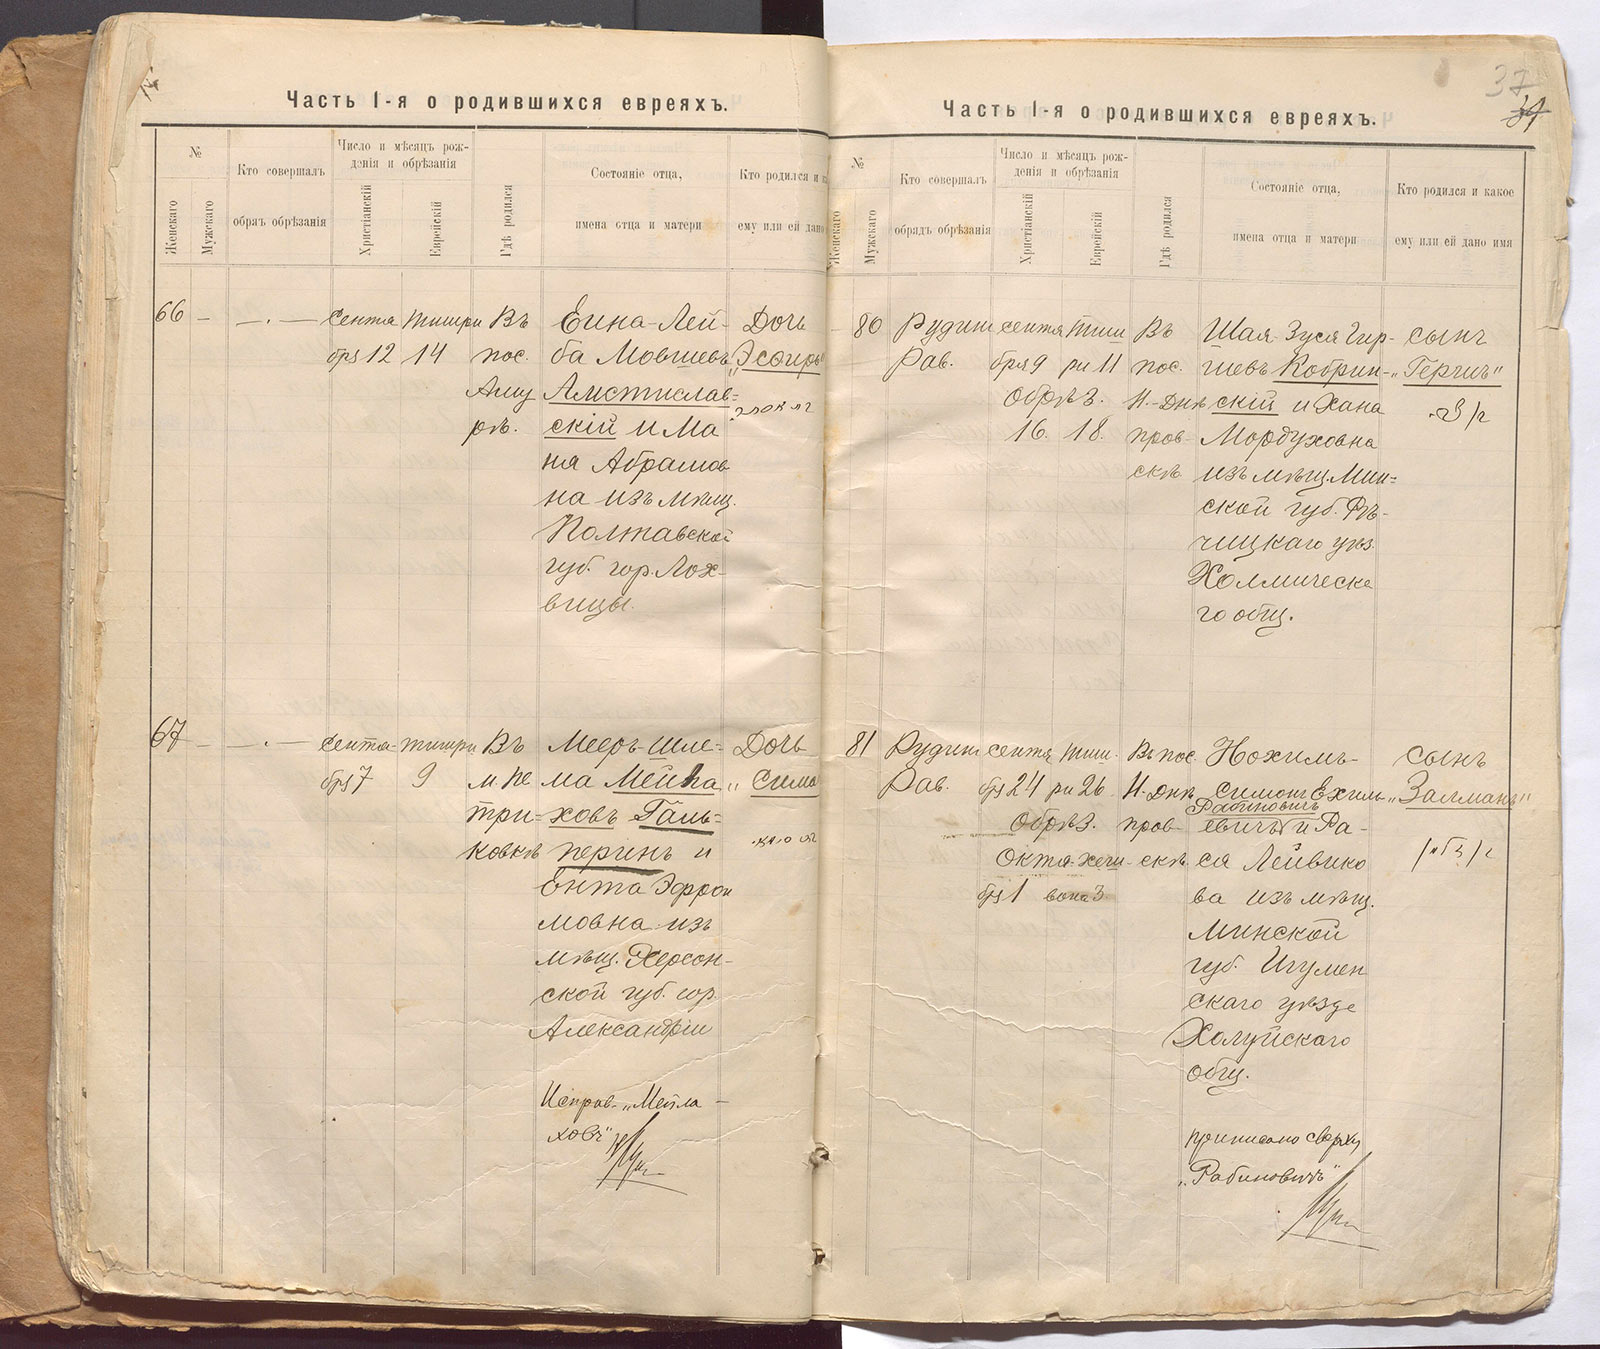 Часть I-я о родившихся евреяхъ.
№
Женскаго
Мужскаго
Кто совершалъ
обрядъ обрѣзанія
Число и мѣсяцъ рож-
денія и обрѣзанія
Христіанскій
Еврейскій
Гдѣ родился
Состояніе отца,
имена отца и матери
Кто родился и ка
ему или ей дано
66
—
— . —
Сентя
бря 12
Тишри
14
Въ
пос.
Аму
ръ.
Лей-
ба Мовшевъ
Амстислав-
скій и Ма
ня Абрамов
на изъ мѣщ.
Полтавской
губ. гор. Лох-
вицы.
Дочь
„Эсѳирь“
67
—
— . —
Сентя-
бря 7
Тишри
9
Въ
м Пе
три-
ковкѣ
Мееръ-Шле-
ма Мейла
ховъ Галь-
перинъ и
Ента Эфрои
мовна изъ
мѣщ. Херсон-
ской губ. гор.
Александріи
Дочь
„Сима
Исправ. „Мейла-
ховъ“
Часть I-я о родившихся евреяхъ.
37
№
Женскаго
Мужскаго
Кто совершалъ
обрядъ обрѣзанія
Число и мѣсяцъ рож-
денія и обрѣзанія
Христіанскій
Еврейскій
Гдѣ родился
Состояніе отца,
имена отца и матери
Кто родился и какое
ему или ей дано имя
80
Рудин
Рав.
Сентя
бря 9
Обрѣз.
16.
Тиш
ри 11
18.
Въ
пос.
Н.-Днѣ
пров-
скѣ
Шая-Зуся Гир-
шевъ Кобрин-
скій и Хана
Мордуховна
изъ мѣщ. Мин-
ской губ. Рѣ-
чицкаго уѣз.
Холмическа
го общ.
сынъ
„Гершъ“
81
Рудин
Рав.
Сентя
бря 24
Обрѣз.
Октя-
бря 1
Тиш-
ри 26
Хеш-
вона 3
Въ пос.
Н.-Днѣ
пров-
скѣ
Нохимъ-
Симон Ехиль
Рабиновичъ
евичъ и Ра-
ся Лейвико
ва изъ мѣщ.
Минской
губ. Игумен
скаго уѣзда
Холуйскаго
общ.
сынъ
„Залманъ“
приписано сверху
„Рабиновичъ“